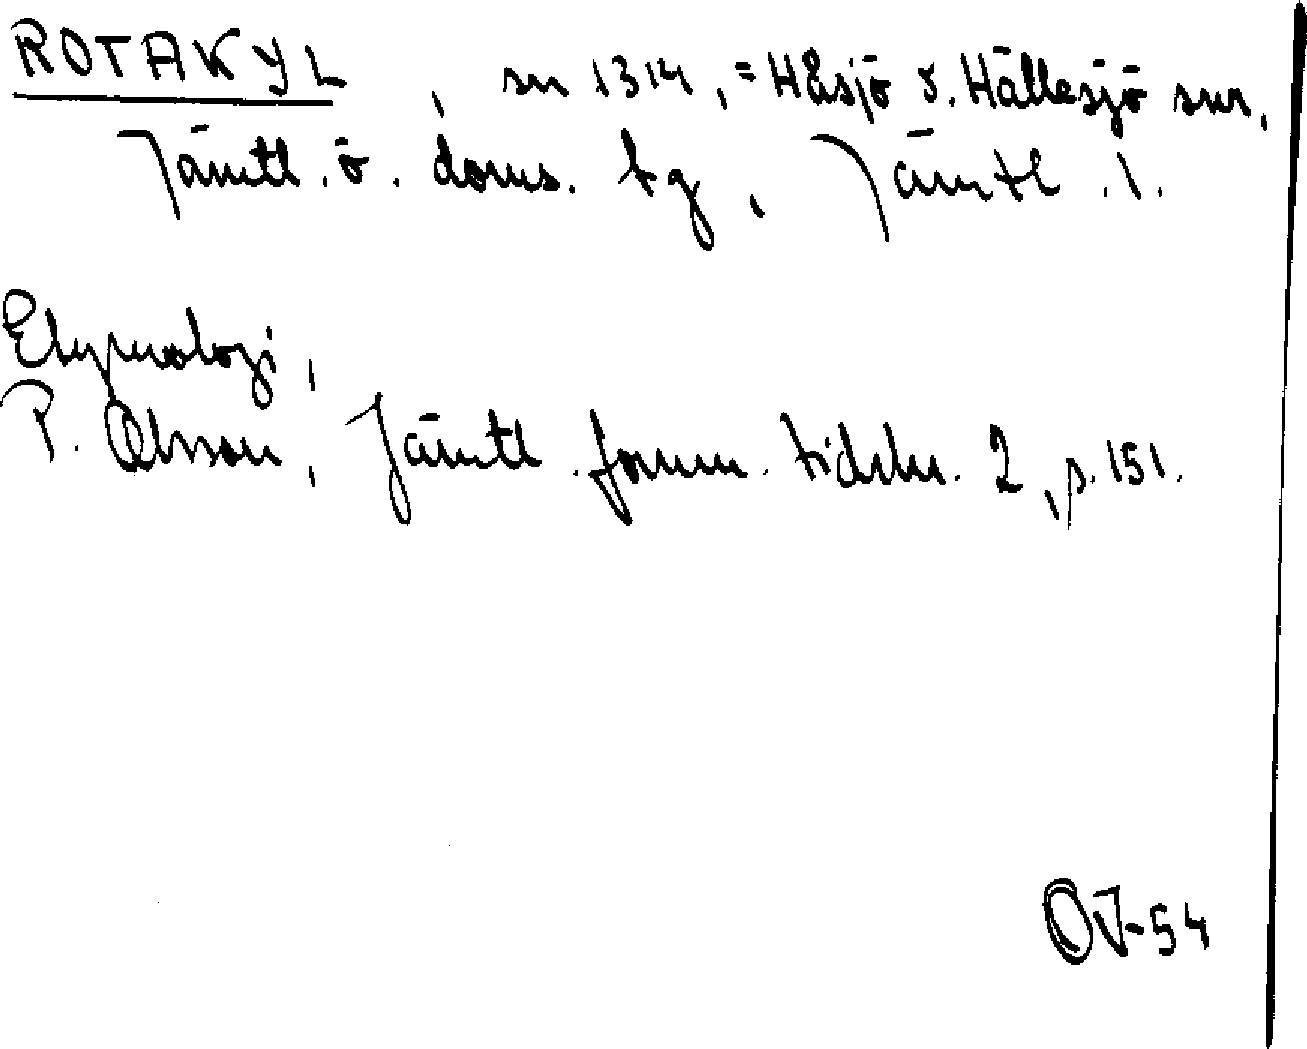 ROTAKYL, sn 1314, = Håsjö o. Hällesjö snr,
Jämtl. ö. doms. tg, Jämtl. l.
Etymologi,
P. Olsson, Jämtl. fornm. tidskr. 2, s. 151.
OJ-54